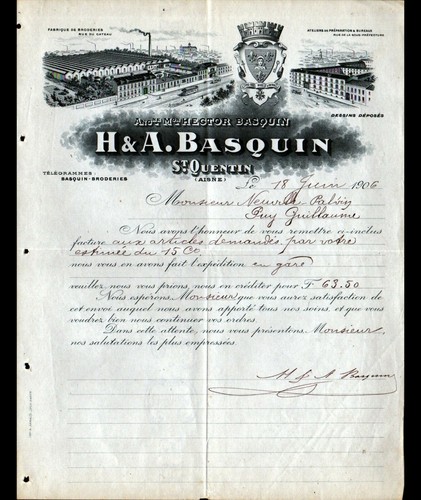 FABRIQUE DE BRODERIES
RUE DU CATEAU
ATELIERS DE PRÉPARATION & BUREAUX
RUE DE LA SOUS-PRÉFECTURE
DESSINS DÉPOSÉS
ANCNE MON HECTOR BASQUIN
H & A. BASQUIN
ST QUENTIN
(AISNE)
TÉLÉGRAMMES:
BASQUIN-BRODERIES
Le 18 Juin 1906
Monsieur Neuville
Puy Guillaume
Nous avons l'honneur de vous remettre ci-inclus
facture aux articles demandés par votre
estimée du 15 Ct
nous vous en avons fait l'expédition en gare
veuillez, nous vous prions, nous en créditer pour F 63.50
Nous espérons Monsieur que vous aurez satisfaction de
cet envoi auquel nous avons apporté tous nos soins, et que vous
voudrez bien nous continuer vos ordres.
Dans cette attente, nous vous présentons Monsieur,
nos salutations les plus empressées.
H & A Basquin